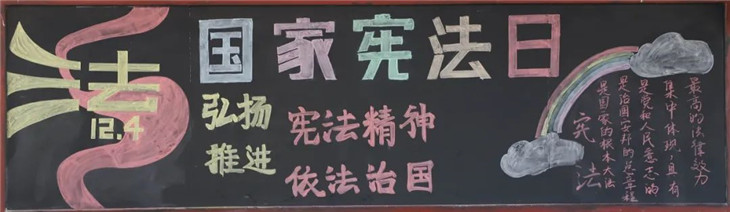 法
12.4
国家宪法日
弘扬
推进
宪法精神
依法治国
宪法
是国家的根本大法
是治国安邦的总章程
是党和人民意志的
集中体现,具有
最高的法律效力